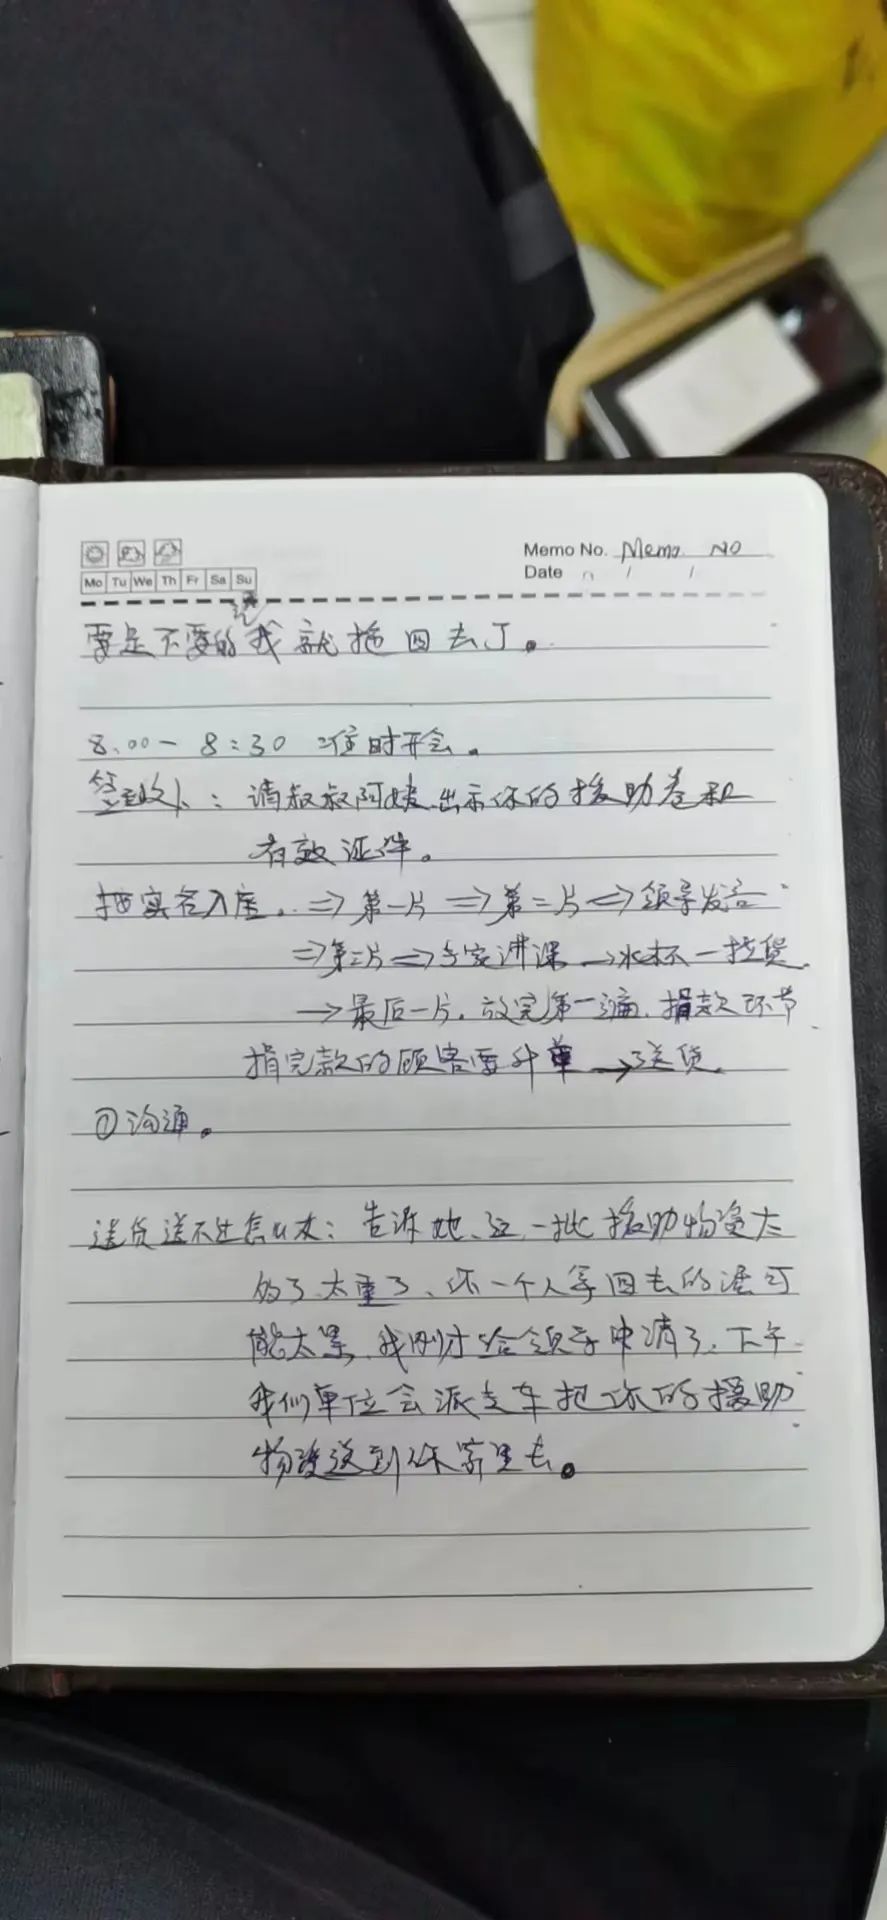 Memo No. Memo NO
Date / /
Mo Tu We Th Fr Sa Su
要是不要的我就拖回去了。
8:00－8:30 准时开会。
签到收入：请叔叔阿姨出示你的援助卷和
有效证件。
实名入座。⇒第一片⇒第二片⇒领导发言
⇒第三片⇒专家讲课→水杯一拉货
→最后一片，放完第一遍，捐款环节
捐完款的顾客要升单→送货
①沟通。
送货送不过怎么办：告诉她、这一批援助物资太
多了太重了、你一个人拿回去的话可
能太累，我刚才给领导申请了，下午
我们单位会派专车把你的援助
物资送到你家里去。